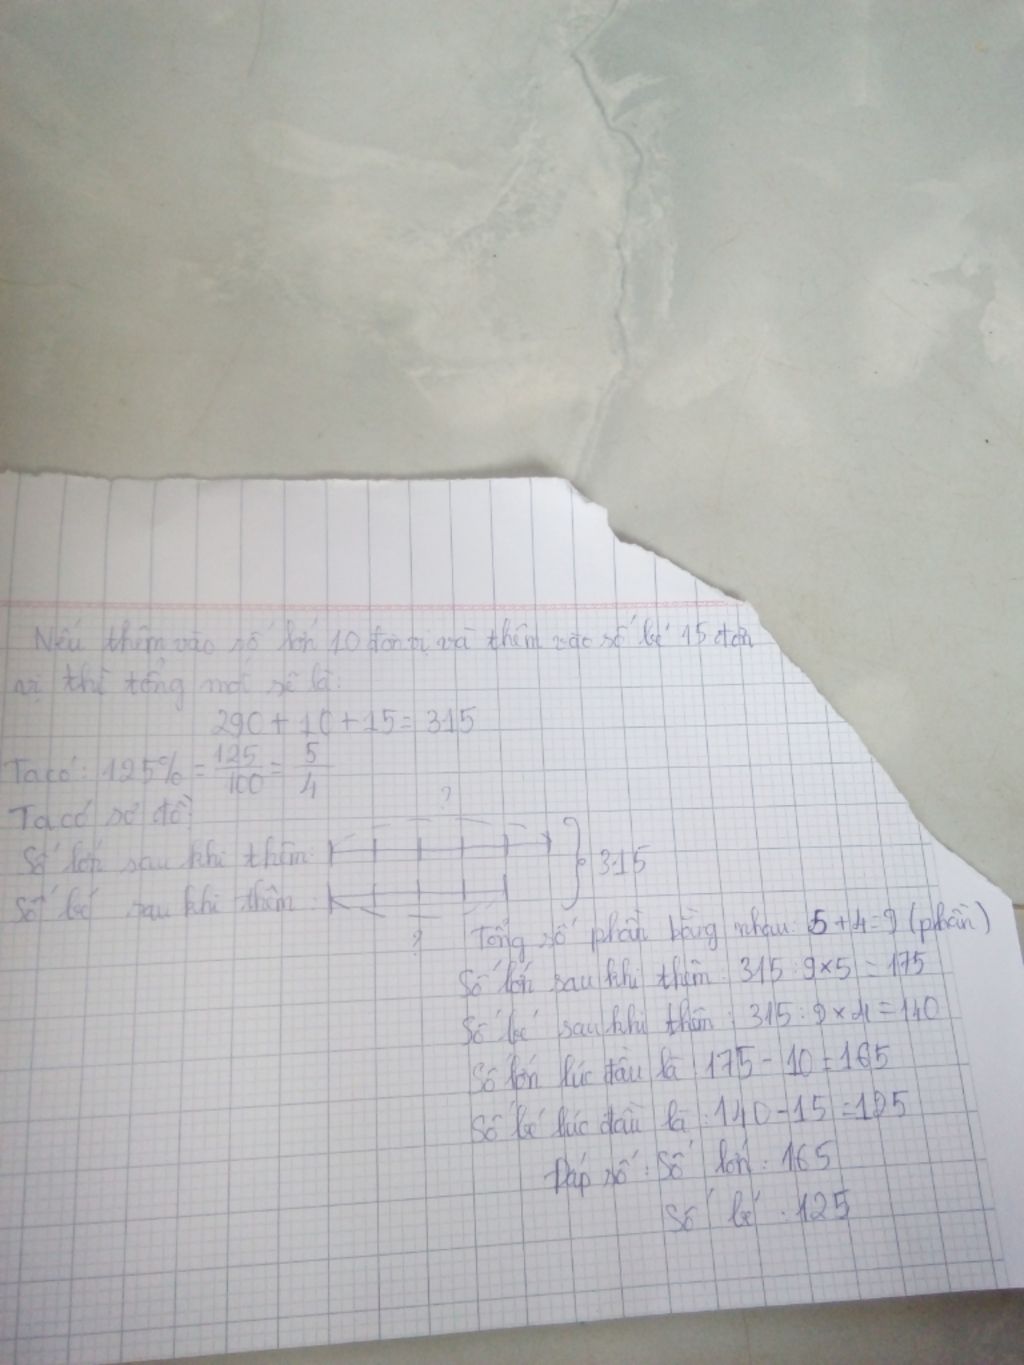 Nếu thêm vào số lớn 10 đơn vị và thêm vào số bé 15 đơn
vị thì tổng mới sẽ là:
290 + 10 + 15 = 315
Ta có: 125% = 125/100 = 5/4
Ta có sơ đồ:
?
Số lớn sau khi thêm:
315
Số bé sau khi thêm:
?
Tổng số phần bằng nhau: 5+4=9 (phần)
Số lớn sau khi thêm: 315:9×5=175
Số bé sau khi thêm: 315:9×4=140
Số lớn lúc đầu là 175-10=165
Số bé lúc đầu là: 140-15=125
Đáp số: Số lớn: 165
Số bé: 125